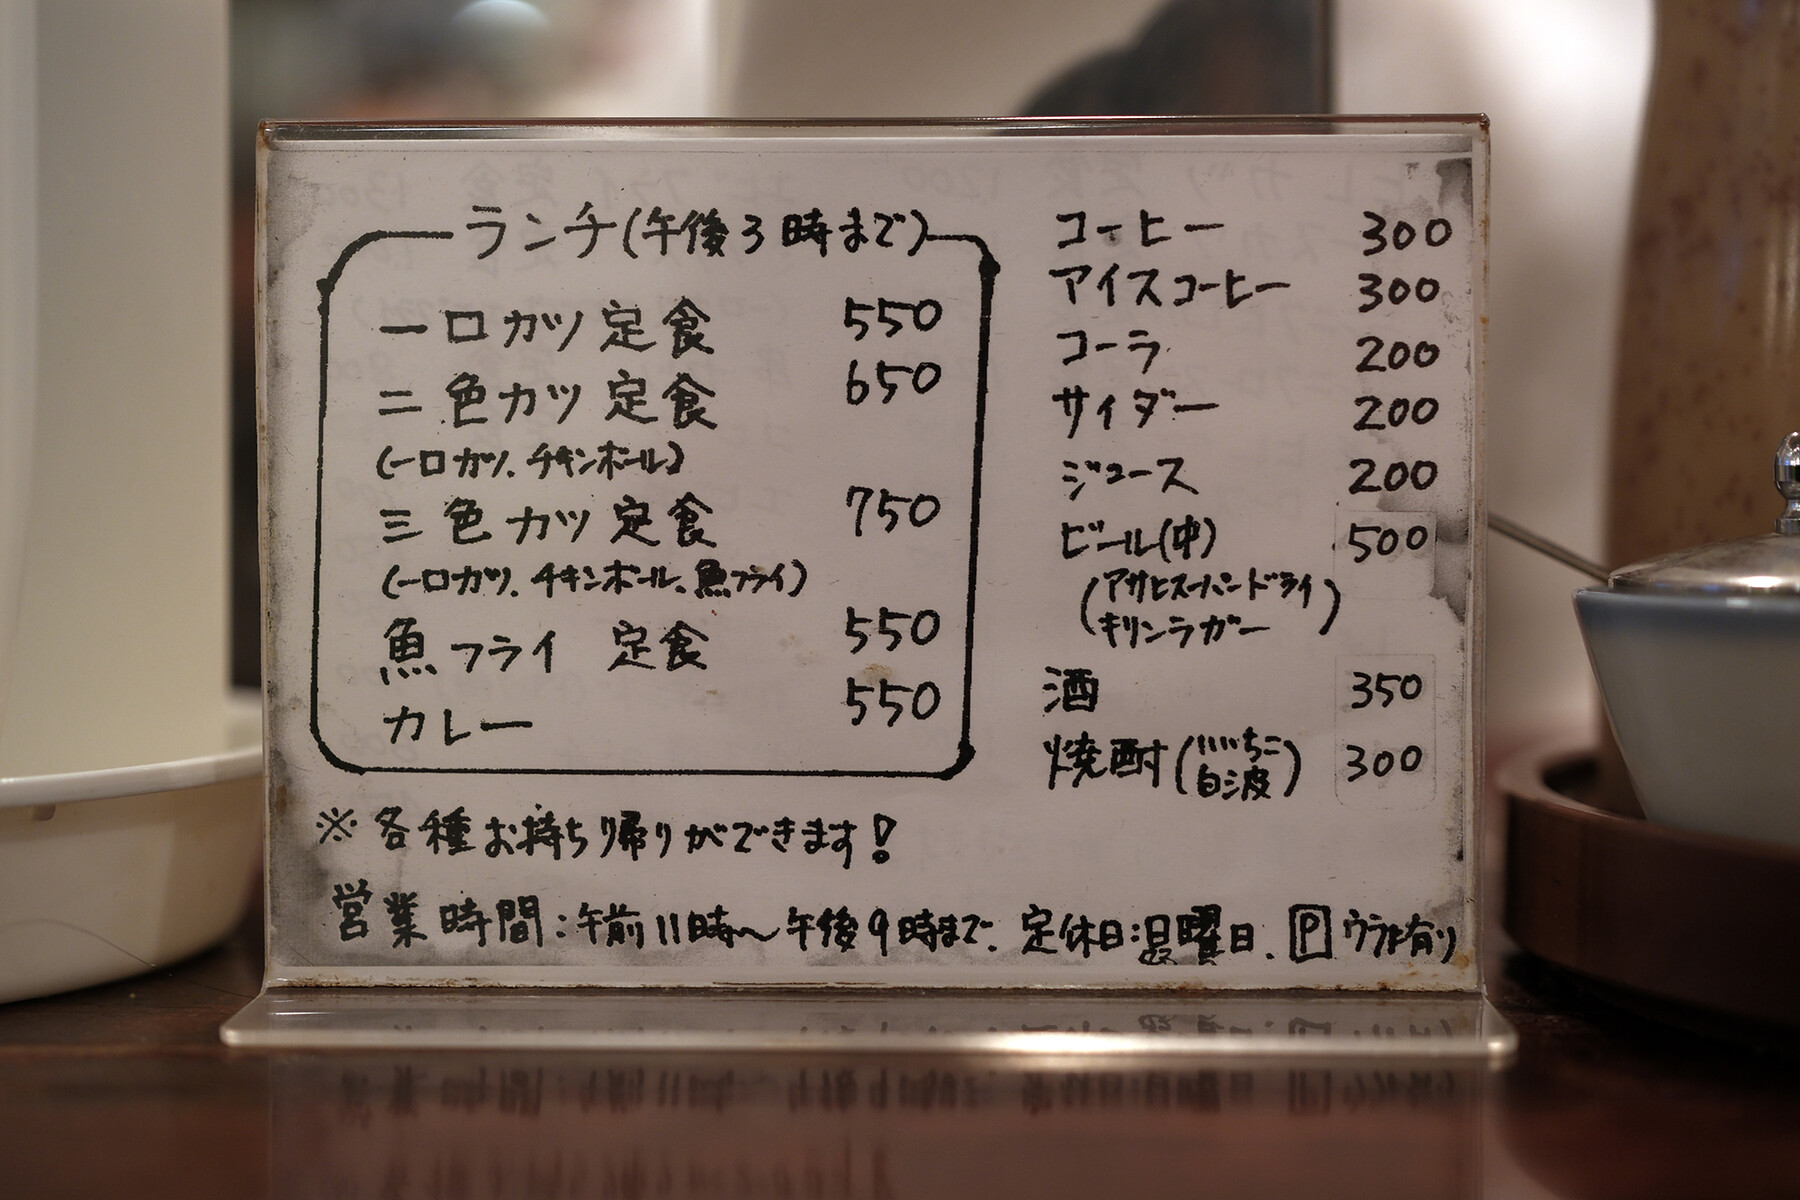 ランチ(午後3時まで)
一口カツ定食 550
二色カツ定食 650
(一口カツ、チキンボール)
三色カツ定食 750
(一口カツ、チキンボール、魚フライ)
魚フライ 定食 550
カレー 550
コーヒー 300
アイスコーヒー 300
コーラ 200
サイダー 200
ジュース 200
ビール(中) 500
(アサヒスーパードライ
キリンラガー)
酒 350
焼酎(いいちこ
白波) 300
※各種お持ち帰りができます!
営業時間:午前11時〜午後9時まで. 定休日:日曜日. P ウラに有り